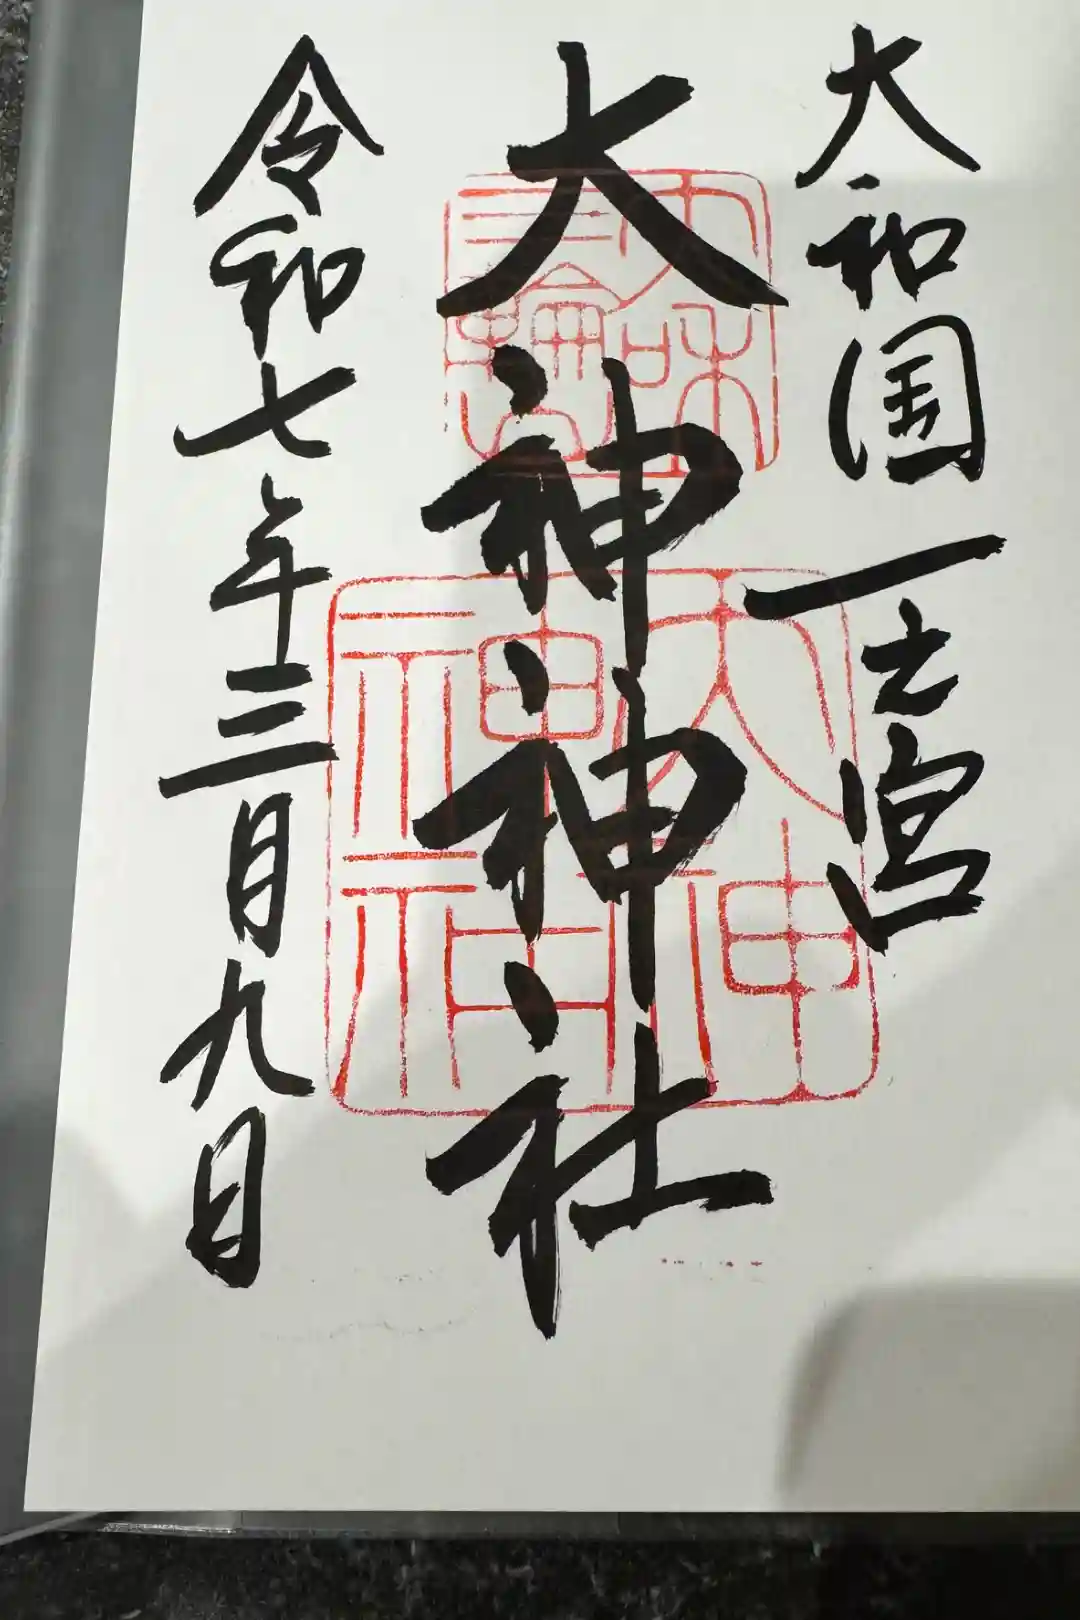 大和国一之宮
大神神社
令和七年三月九日
大和
三輪山
大神
神社